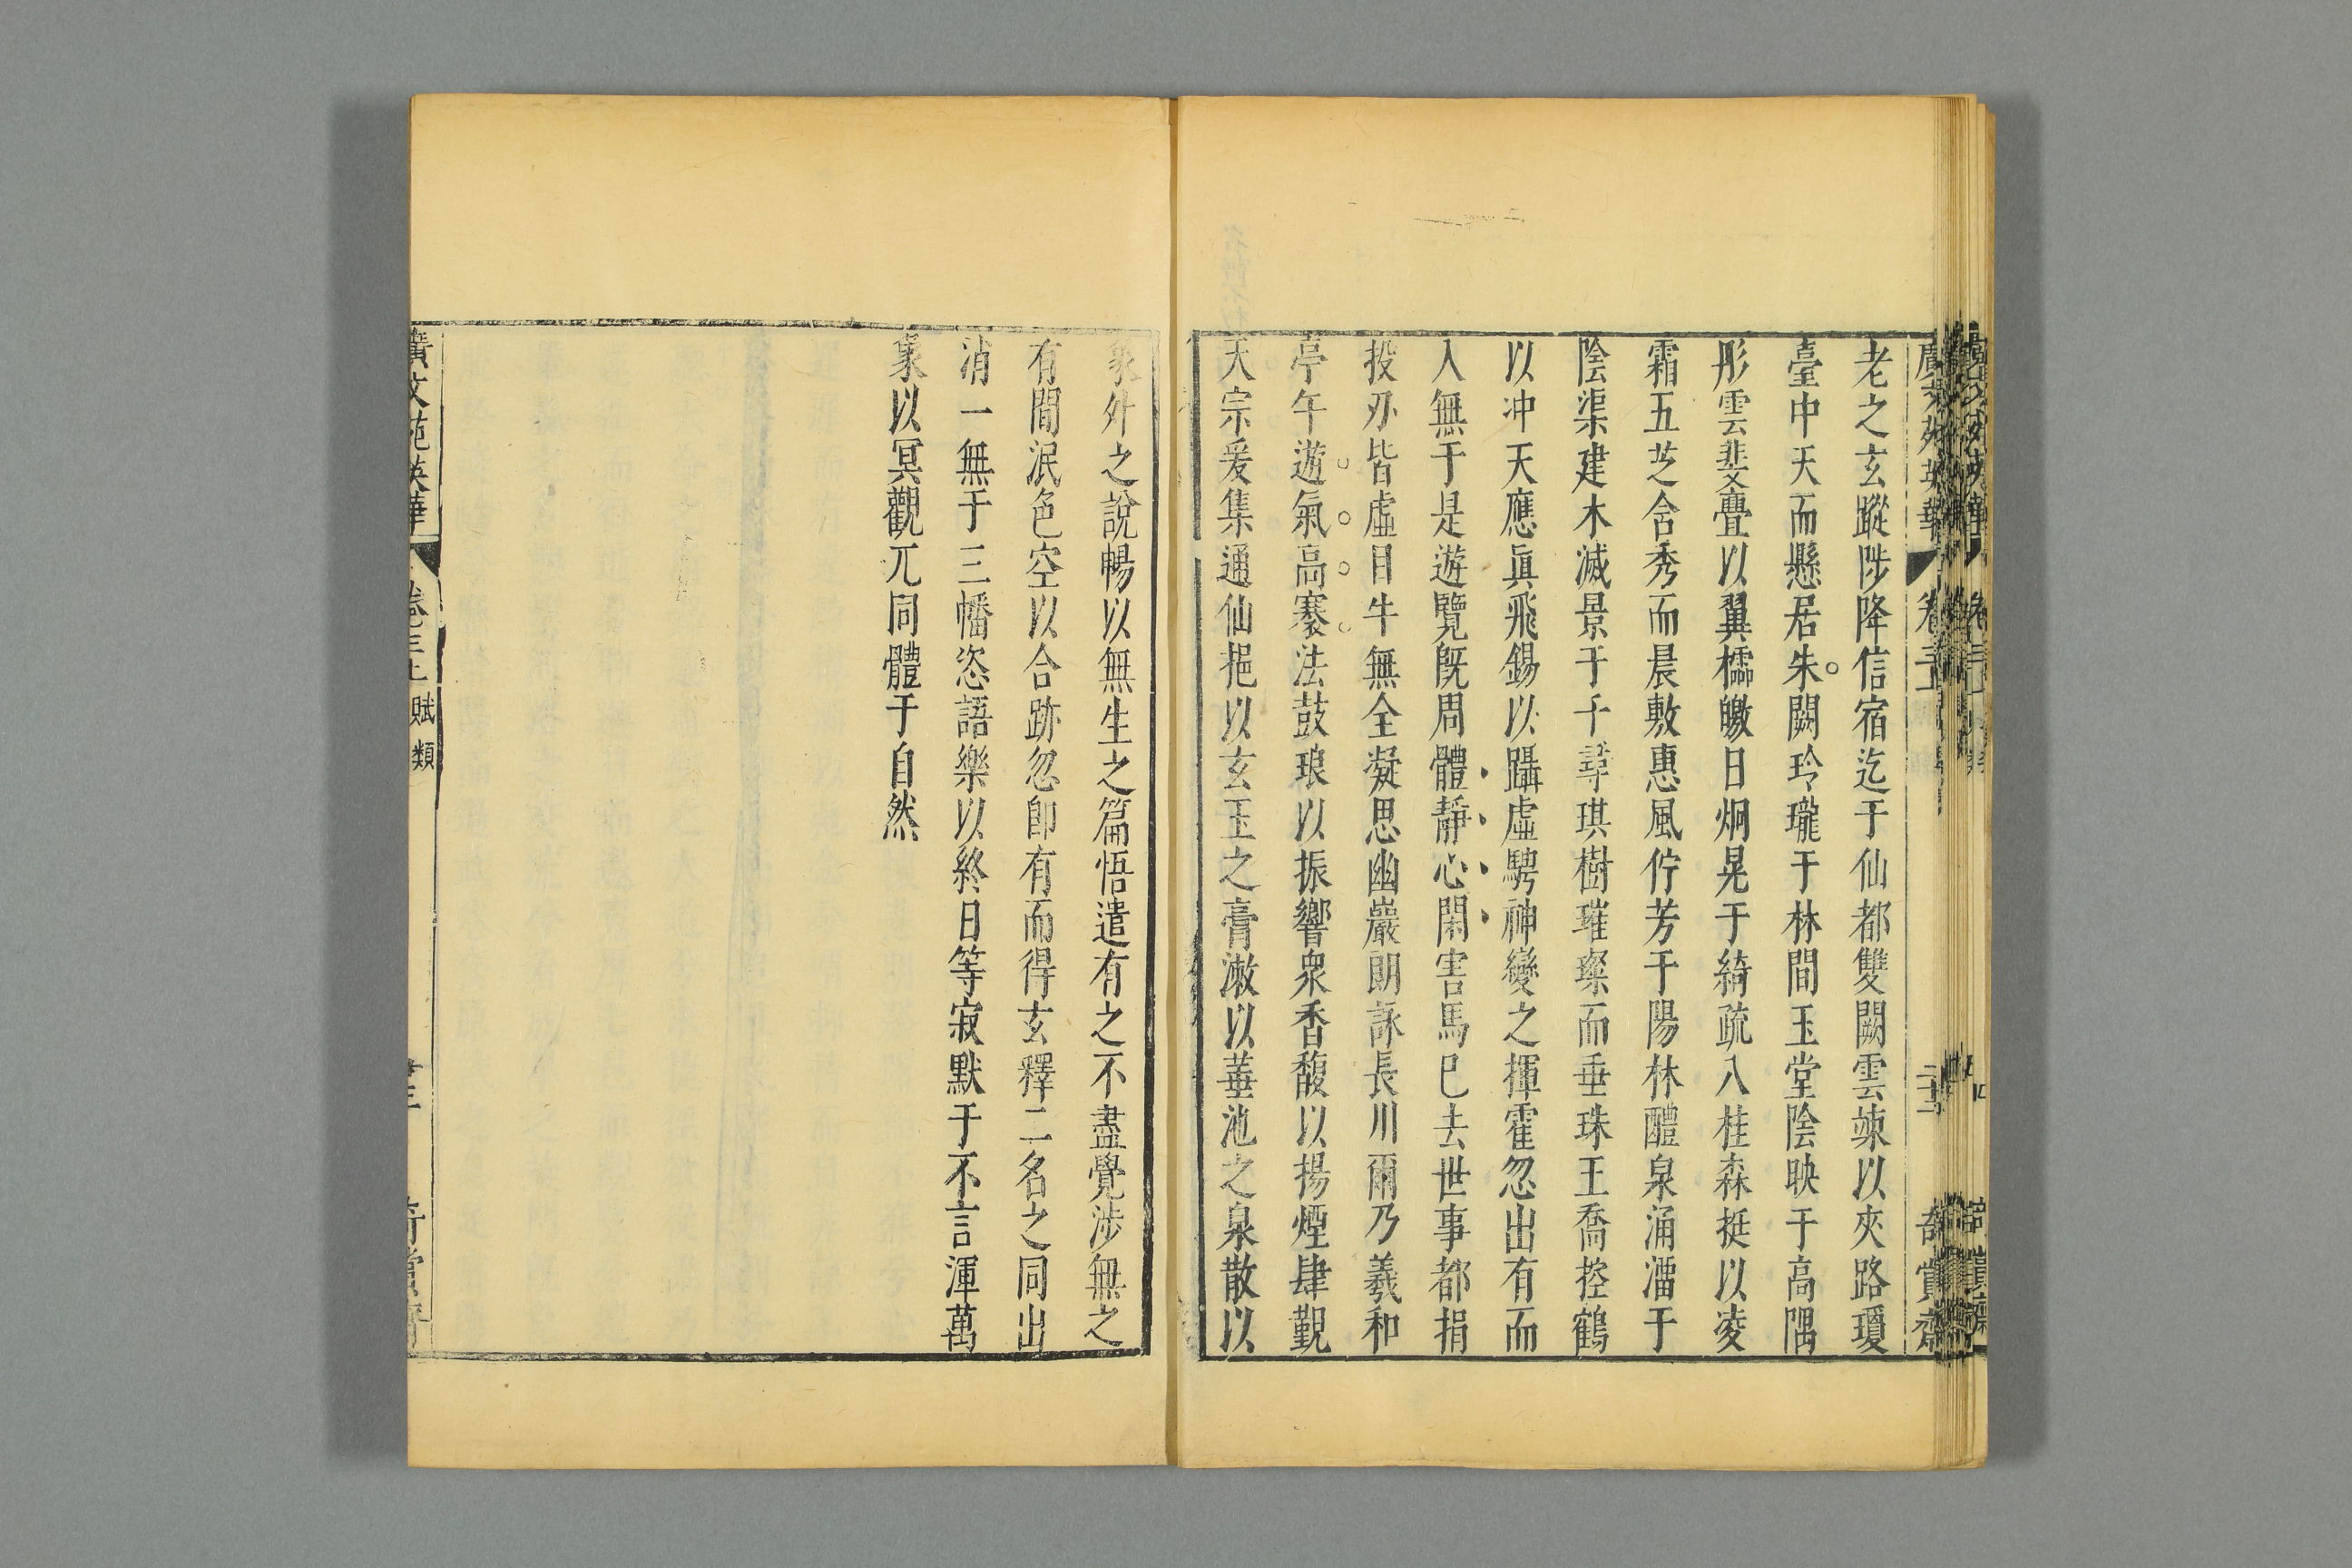 老之玄蹤陟降信宿迄于仙都雙闕雲竦以夾路瓊
臺中天而懸居朱闕玲瓏于林間玉堂陰映于高隅
彤雲斐亹以翼櫺皦日炯晃于綺疏八桂森挺以凌
霜五芝含秀而晨敷惠風佇芳于陽林醴泉涌溜于
陰渠建木滅景于千尋琪樹璀璨而垂珠王喬控鶴
以冲天應眞飛錫以躡虛騁神變之揮霍忽出有而
入無于是遊覽旣周體靜心閑害馬已去世事都捐
投刃皆虛目牛無全凝思幽巖朗詠長川爾乃羲和
亭午遊氣高褰法鼓琅以振響衆香馥以揚煙肆覲
天宗爰集通仙挹以玄玉之膏漱以華池之泉散以
象外之說暢以無生之篇悟遣有之不盡覺涉無之
有間泯色空以合跡忽卽有而得玄釋二名之同出
消一無于三幡恣語樂以終日等寂默于不言渾萬
象以冥觀兀同體于自然
廣文苑英華
賦類